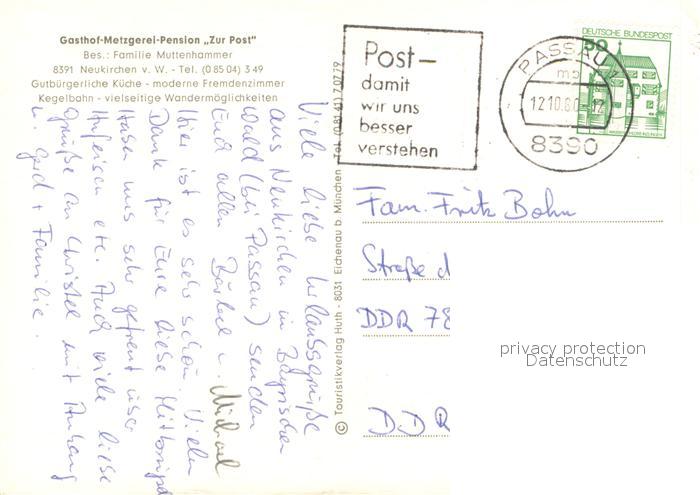 Gasthof-Metzgerei-Pension „Zur Post"
Bes.: Familie Muttenhammer
8391 Neukirchen v. W. - Tel. (0 85 04) 3 49
Gutbürgerliche Küche - moderne Fremdenzimmer
Kegelbahn - vielseitige Wandermöglichkeiten
Viele liebe Urlaubsgrüße
aus Neukirchen in Bayrischen
Wald (bei Passau) senden
Euch allen Bärbel u. Michael
Hier ist es sehr schön. Vielen
Dank für Eure liebe
Haben uns sehr gefreut über
Hufeisen etc. Auch viele liebe
Grüße an Christel mit Anhang
u. Gerd + Familie.
© Touristikverlag Huth - 8031 Eichenau b. München Tel. (0 81 41) 7 07 79
Post-
damit
wir uns
besser
verstehen
PASSAU 1
mb
12.10.80-12
8390
DEUTSCHE BUNDESPOST
50
Fam. Fritz Bohn
Straße d
DDR 78
DDR
privacy protection
Datenschutz